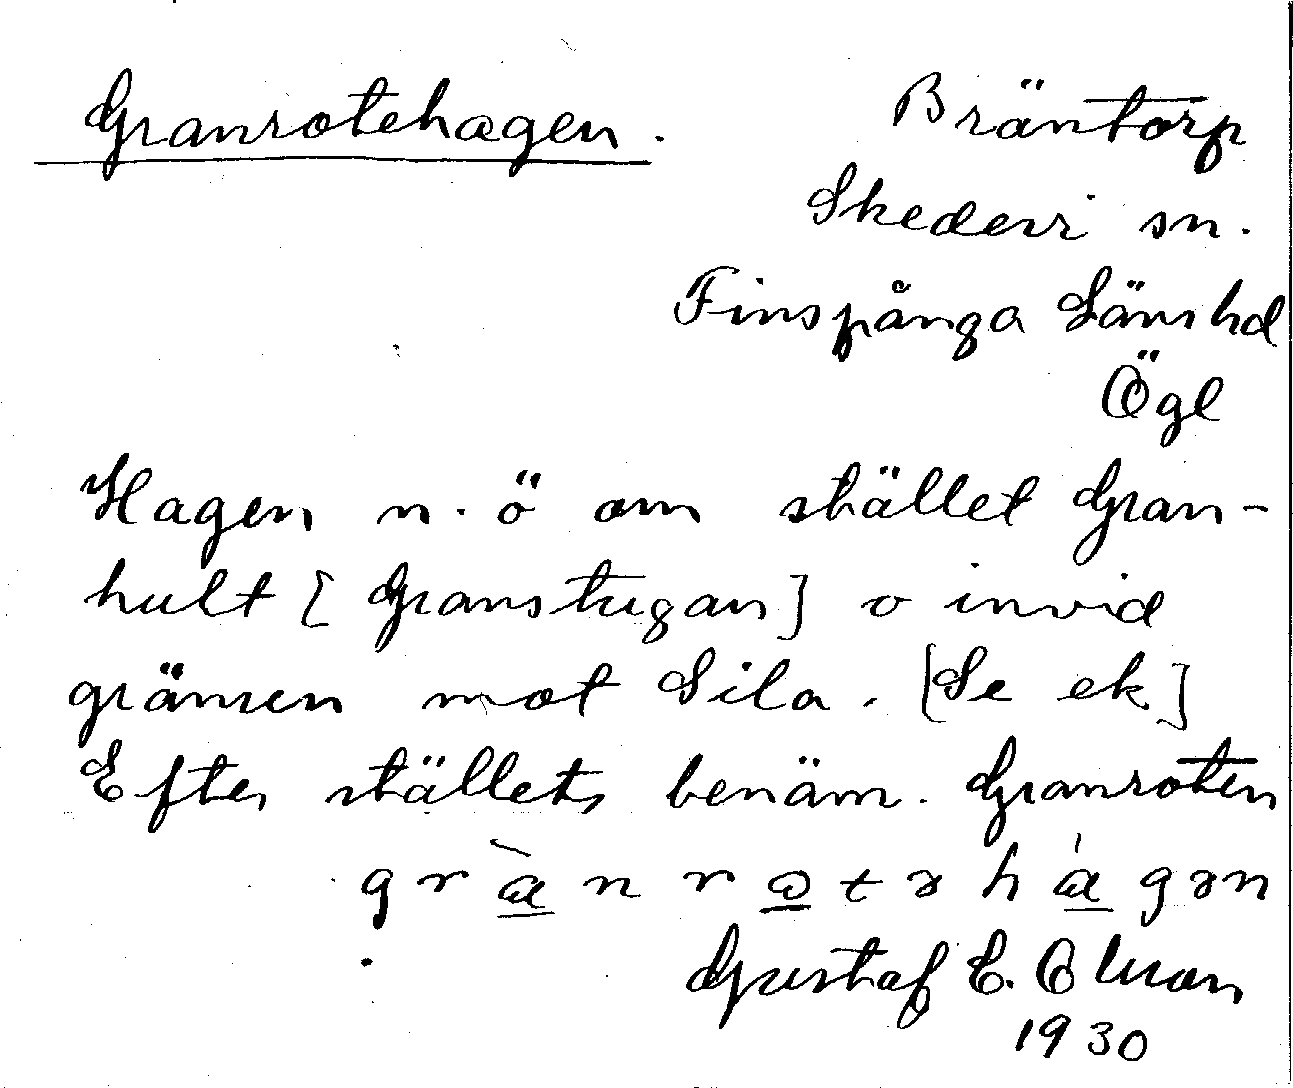 Granrotehagen.
Bräntorp
Skedevi sn.
Finspånga Läns hd
Ögl
Hagen n. ö om stället Gran-
hult [Granstugan] o invid
gränsen mot Sila. [Se ek]
Efter ställets benäm. Granroten
grànrɷtəhágən
Gustaf E. Olsson
1930